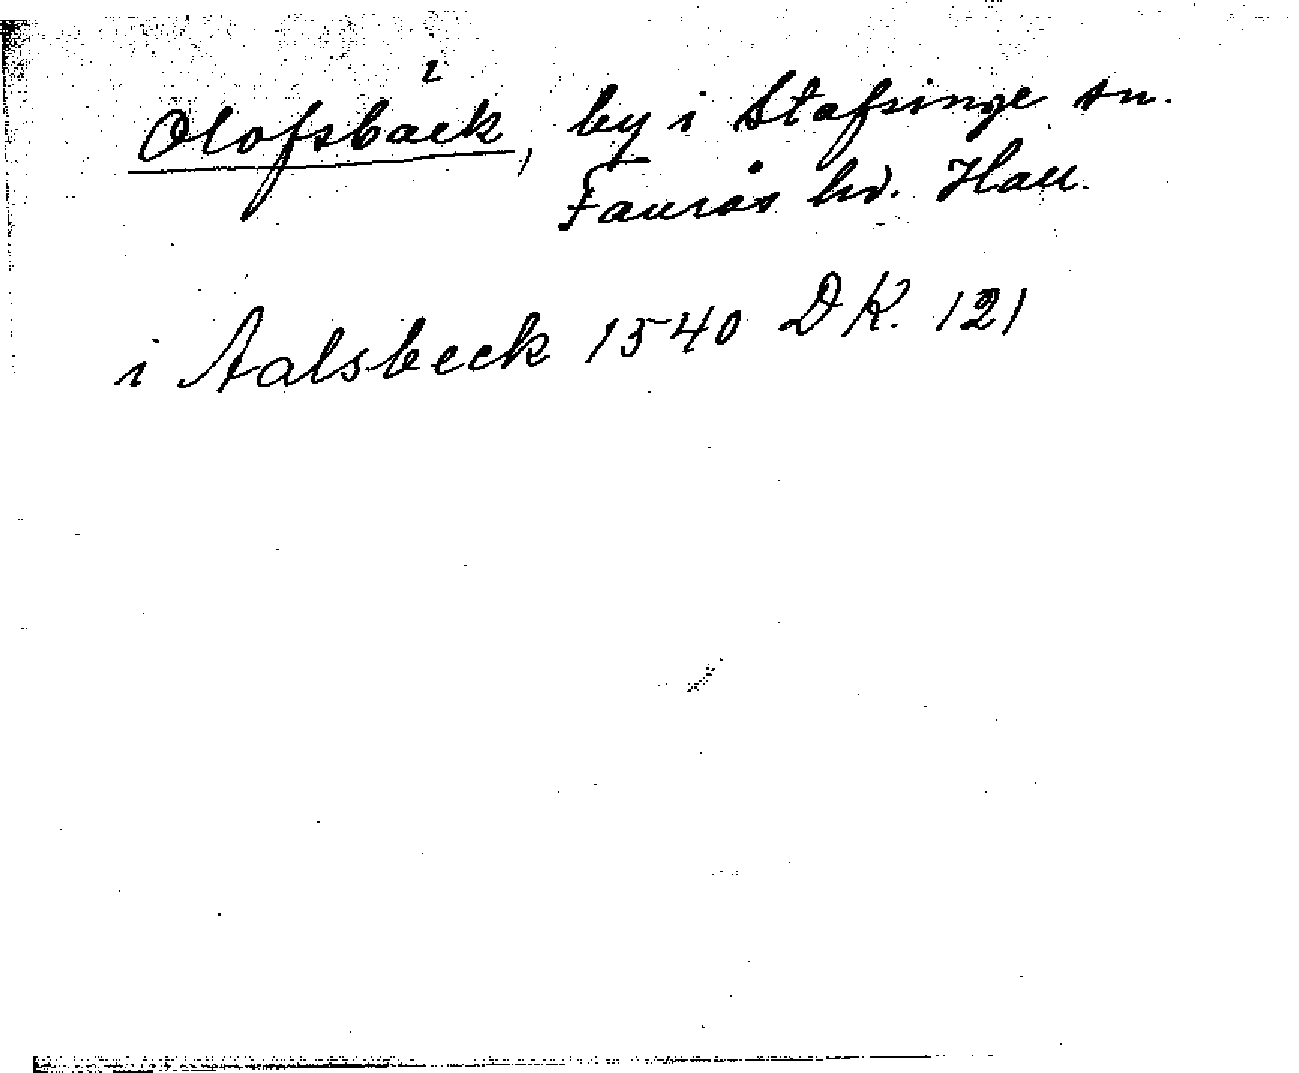 Olofsbäck, by i Stafsinge sn.
Faurås hd. Hall.
i Aalsbeck 1540 DK. 121